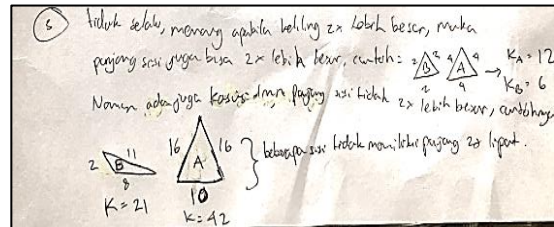 5 tidak selalu, memang apabila keliling 2x lebih besar, maka
panjang sisi juga bisa 2x lebih besar, contoh: 2 B 2 2 4 A 4 4 → KA = 12
KB = 6
Namun ada juga kasus dmn panjang sisi tidak 2x lebih besar, contohnya
2 B 11 8 16 A 16 10 } beberapa sisi tidak memiliki panjang 2x lipat.
K = 21 K = 42